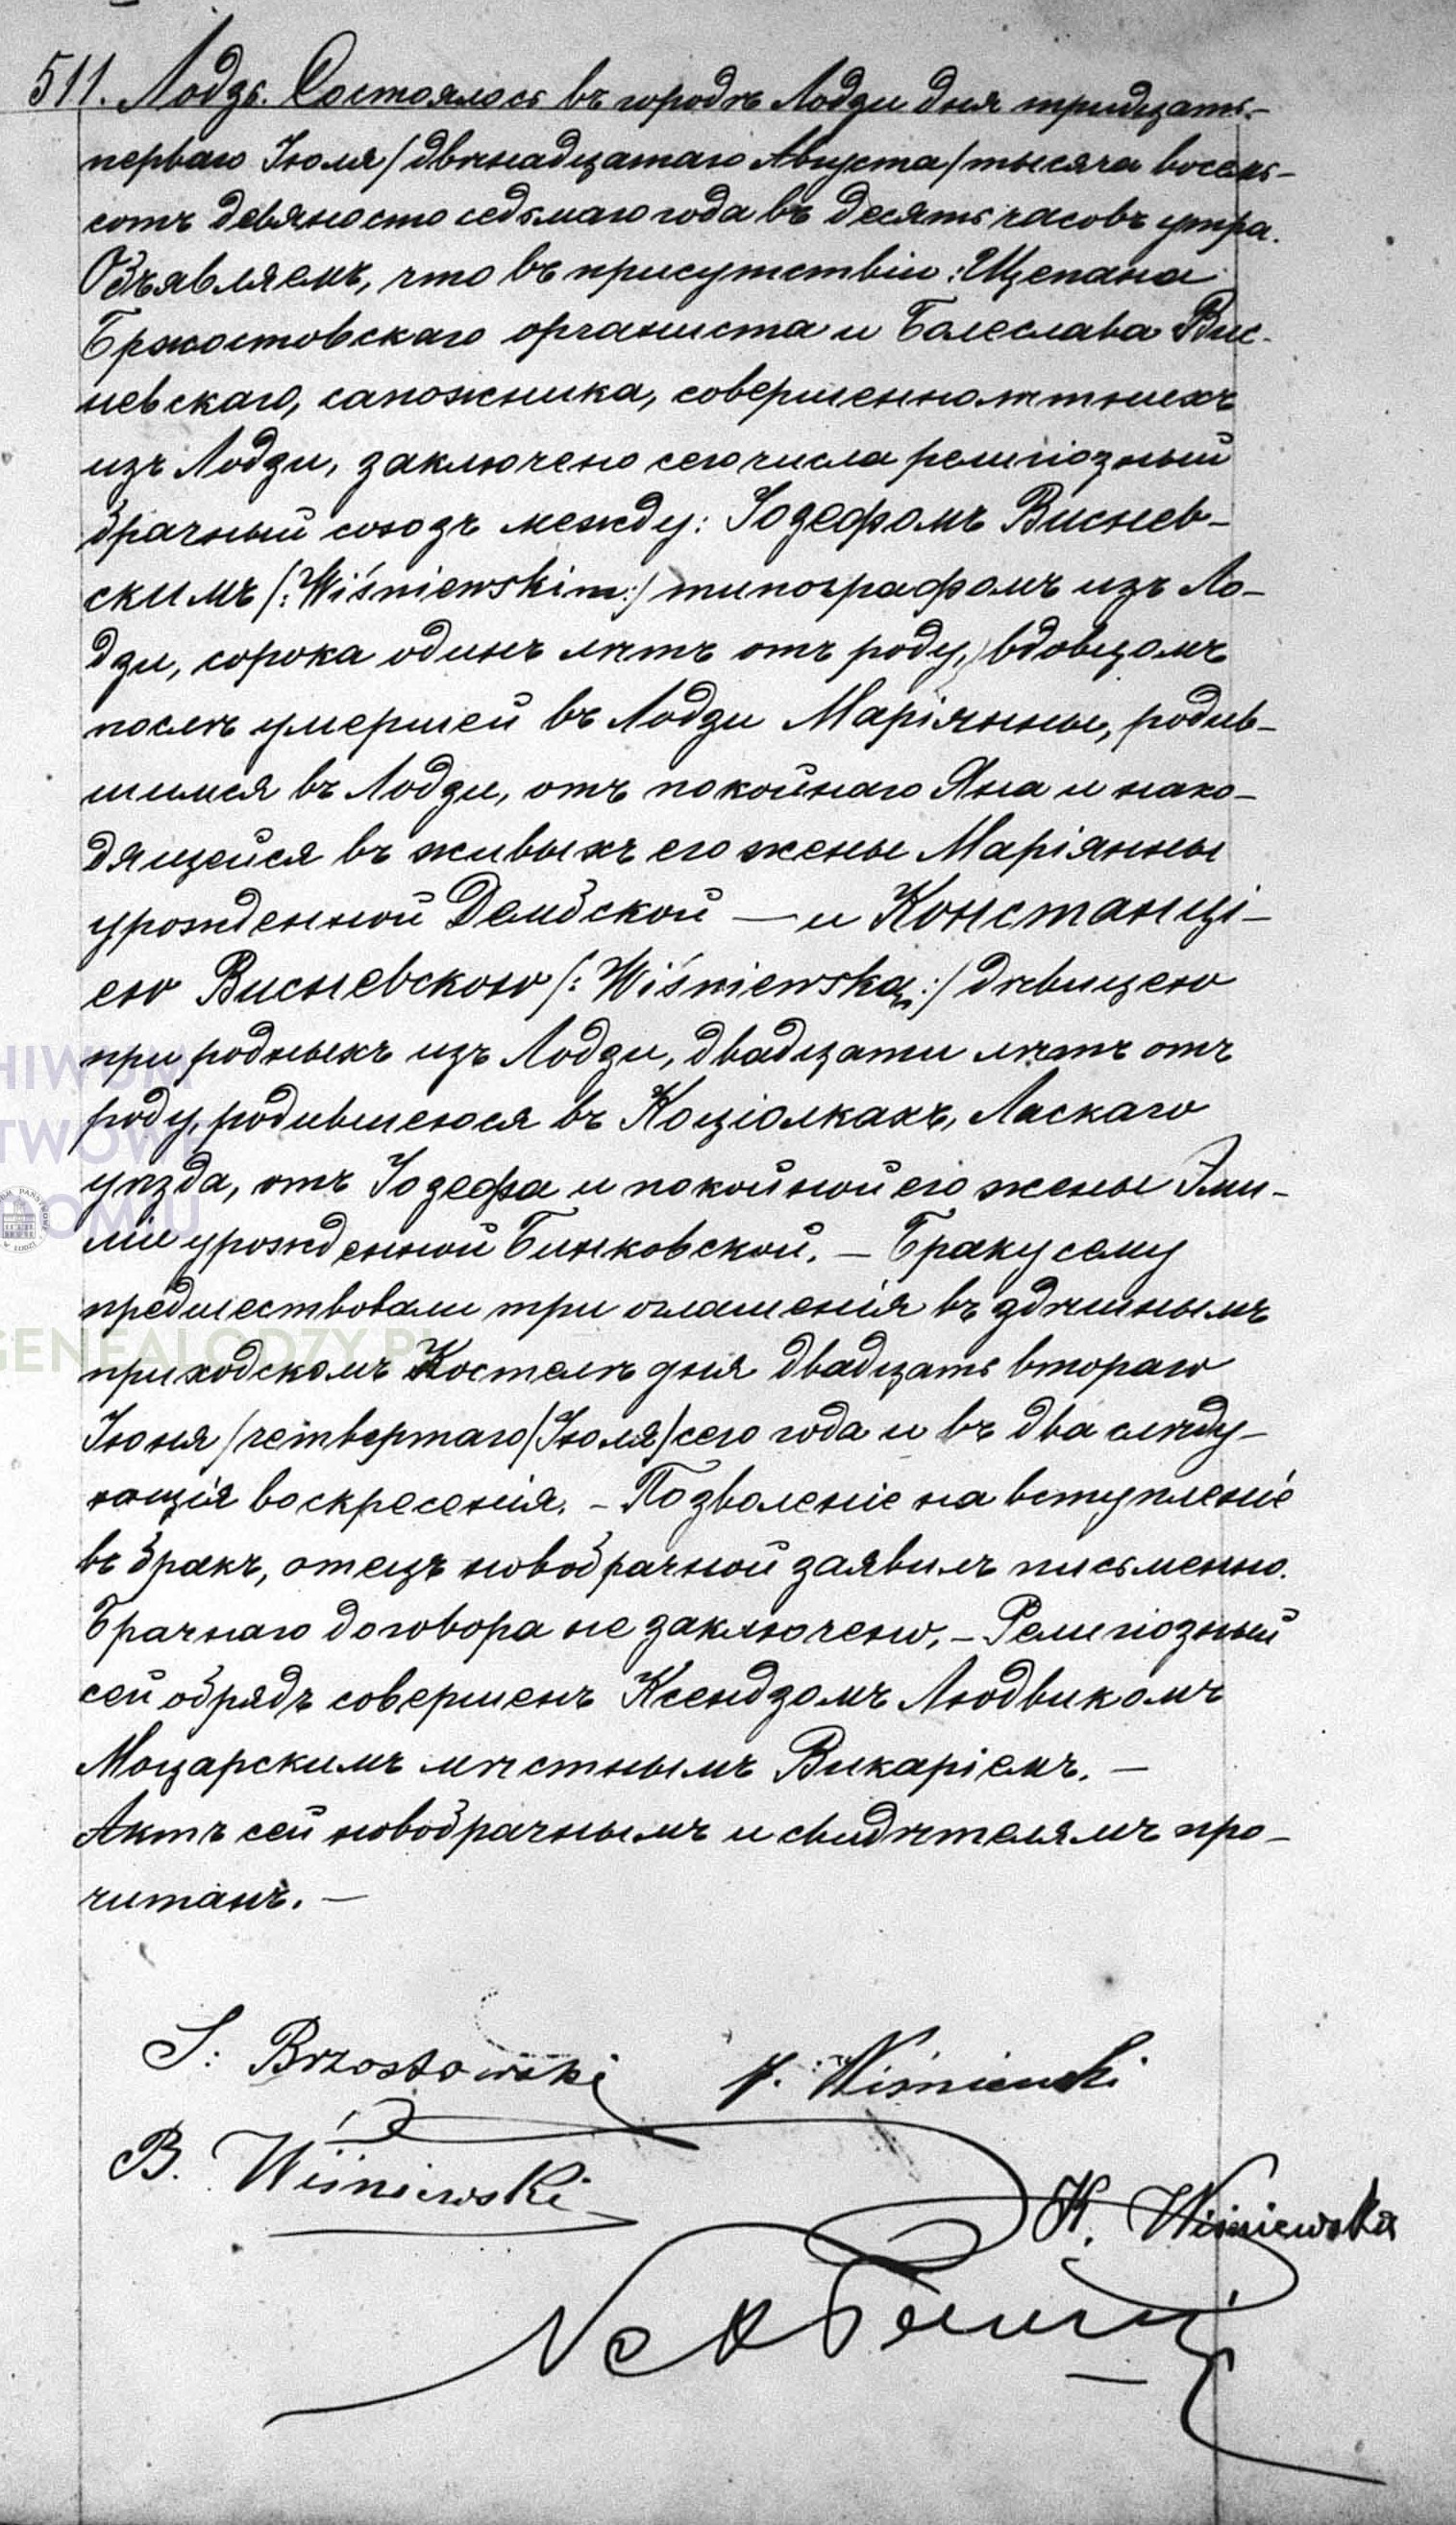 511. Лодзь. Состоялось въ городѣ Лодзи дня тридцать-
перваго Іюля /двѣнадцатаго Августа/ тысяча восемь-
сотъ девяносто седьмаго года въ десять часовъ утра.
Объявляемъ, что въ присутствіи: Щепана
Бржостовскаго органиста и Болеслава Вис-
невскаго, сапожника, совершеннолѣтнихъ
изъ Лодзи, заключено сего числа религіозный
брачный союзъ между: Іозефомъ Виснев-
скимъ /:Wiśniewskim:/ типографомъ изъ Ло-
дзи, сорока одинъ лѣтъ отъ роду, вдовцомъ
послѣ умершей въ Лодзи Маріянны, родив-
шимся въ Лодзи, отъ покойнаго Яна и нахо-
дящейся въ живыхъ его жены Маріянны
урожденной Дембской — и Констанці-
ею Висневскою /:Wiśniewską:/ дѣвицею
при родныхъ изъ Лодзи, двадцати лѣтъ отъ
роду, родившеюся въ Коціолкахъ, Ласкаго
уѣзда, отъ Іозефа и покойной его жены Эми-
ліи урожденной Бинковской. — Браку сему
предшествовали три оглашенія въ здѣшнымъ
приходскомъ Костелѣ дня двадцать втораго
Іюня /четвертаго/Іюля/ сего года и въ два слѣду-
ющія воскресенія. — Позволеніе на вступленіе
въ бракъ, отецъ новобрачной заявилъ письменно.
Брачнаго договора не заключено. — Религіозный
сей обрядъ совершенъ Ксендзомъ Людвикомъ
Моцарскимъ мѣстнымъ Викаріемъ. —
Актъ сей новобрачнымъ и свидѣтелямъ про-
читанъ. —
S: Brzostowski J. Wiśniewski
B. Wiśniewski
K. Wiśniewska